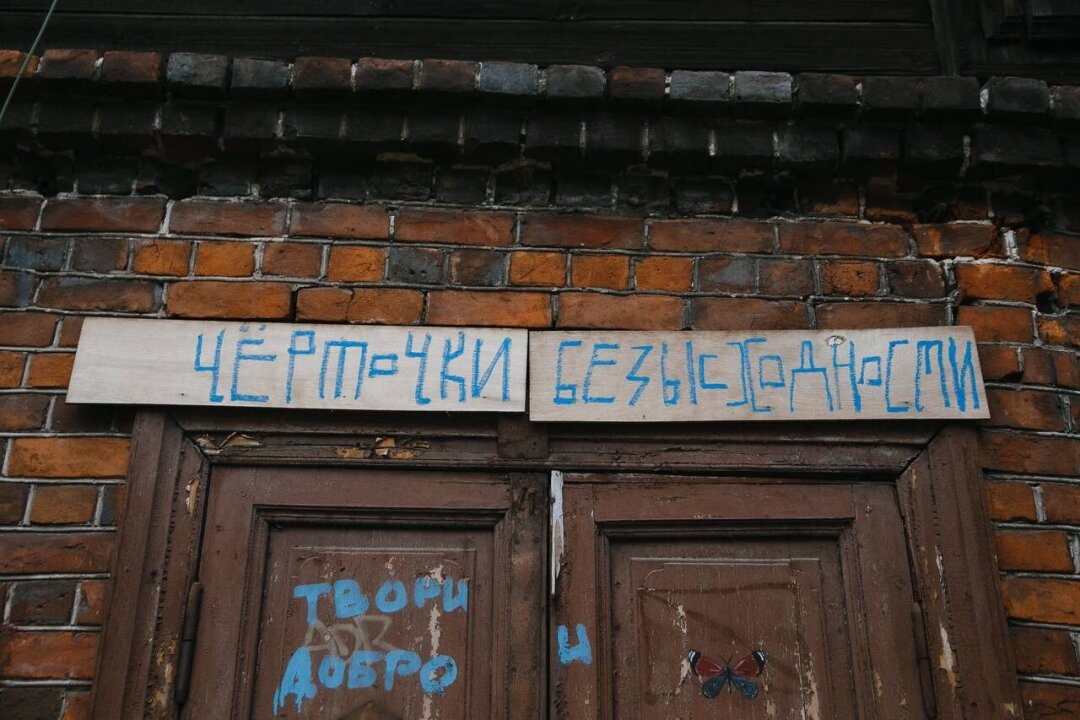 ЧЁРТоЧКИ БЕЗЫсХоДНоСТИ
ТВОРИ
ДОБРО
И